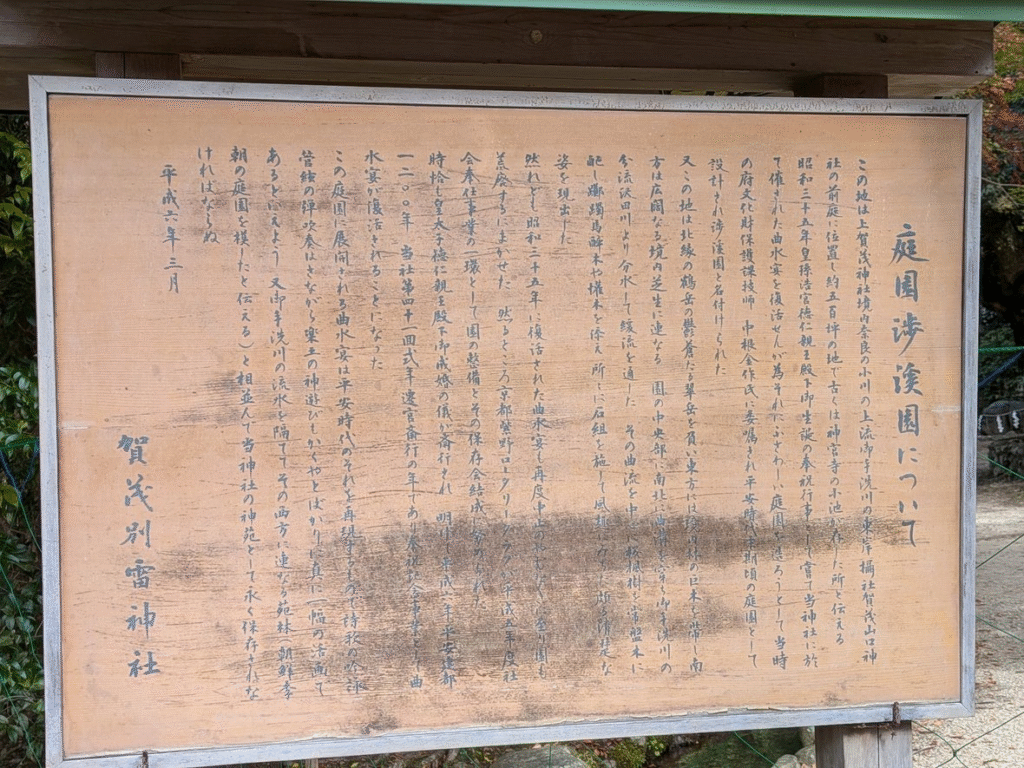 庭園渉渓園について
この地は上賀茂神社境内奈良の小川の上流御手洗川の東岸摂社賀茂山口神
社の前庭に位置し約五百坪の地で古くは神宮寺の小池が存した所と伝える
昭和三十五年皇孫浩宮徳仁親王殿下御生誕の奉祝行事として嘗て当神社に於
て催された曲水宴を復活せんが為それにふさわしい庭園を造ろうとして当時
の府文化財保護課技師 中根金作氏に委嘱され平安時代中期頃の庭園として
設計され渉渓園と名付けられた
又この地は北縁の鶴岳の鬱蒼たる翠岳を負い東方には の巨木を帯し南
方は広闊なる境内芝生に連なる 園の中央部に南北に曲 御手洗川の
分流沢田川より分水して緩流を通した その曲流を中 樹を常盤木に
配し躑躅馬酔木や潅木を添え所々に石組を施して風 な
姿を現出した
然れども昭和三十五年に復活された曲水宴も再度中止の 園も
荒廃するにまかせた 然るところ京都紫野ロータリークラブの平成五年度社
会奉仕事業の一環として園の整備とその保存会結成に られた
時恰も皇太子徳仁親王殿下御成婚の儀が斎行され 明けて平成六年平安建都
一二〇〇年 当社第四十一回式年遷宮斎行の年であり奉祝記念事業として曲
水宴が復活されることになった
この庭園に展開される曲水宴は平安時代のそれを再現するもので詩歌の吟詠
管絃の弾吹奏はさながら楽土の神遊びもかくやとばかりに真に一幅の活画で
あるといえよう 又御手洗川の流水を隔ててその西方に連なる苑林(朝鮮李
朝の庭園を模したと伝える)と相並んで当神社の神苑として永く保存されな
ければならぬ
平成六年 三月
賀茂別雷神社